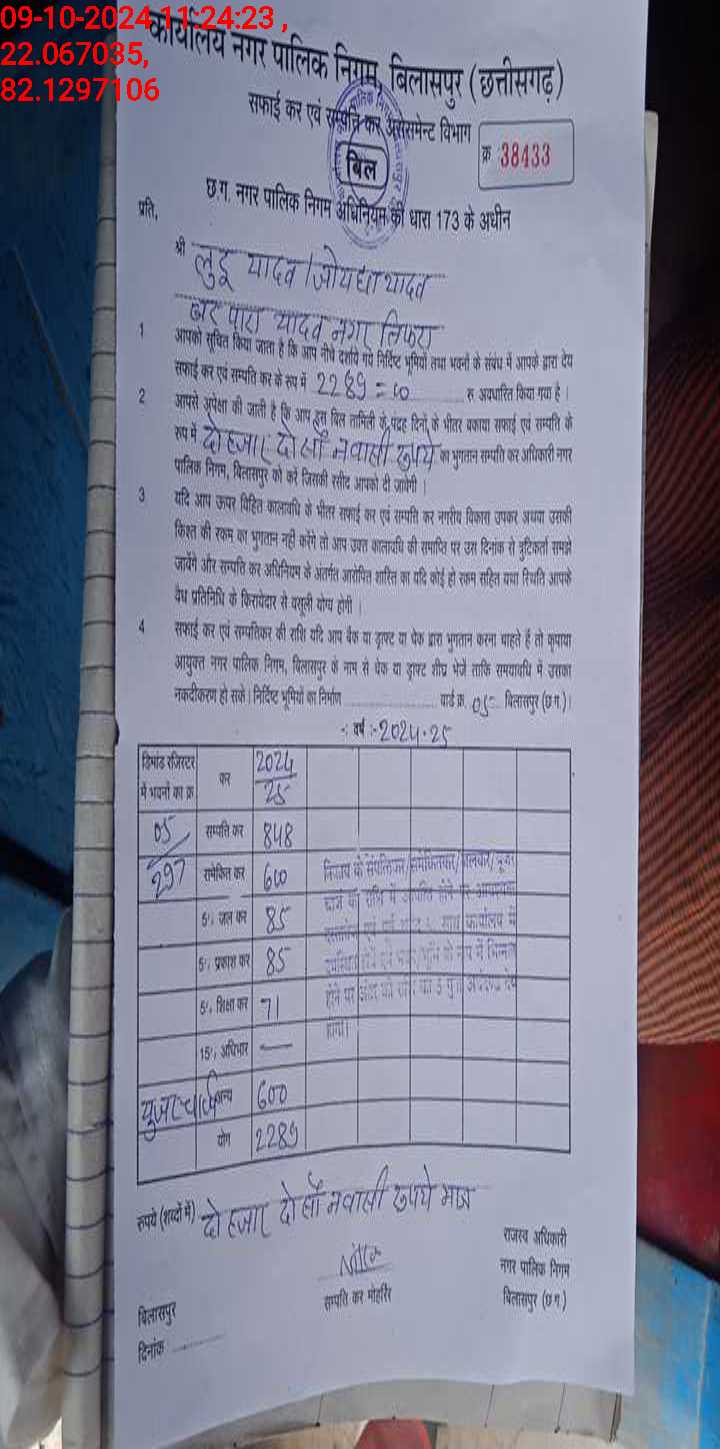 09-10-2024 11:24:23 ,
22.067035,
82.1297106
कार्यालय नगर पालिक निगम, बिलासपुर (छत्तीसगढ़)
सफाई कर एवं सम्पत्ति कर असेसमेन्ट विभाग
बिल
क्र 38433
छ.ग. नगर पालिक निगम अधिनियम की धारा 173 के अधीन
प्रति,
श्री लुडू यादव / यादव
पारा यादव नगर तिफरा
1 आपको सूचित किया जाता है कि आप नीचे दर्शाये गये निर्दिष्ट भूमियों तथा भवनों के संबंध में आपके द्वारा देय
सफाई कर एवं सम्पति कर के रूप में 2289=00 रु अवधारित किया गया है।
2 आपसे अपेक्षा की जाती है कि आप इस बिल तामिली के पंद्रह दिनों के भीतर बकाया सफाई एवं सम्पति के
रूप में दो हजार दो सौ नवासी रुपये का भुगतान सम्पति कर अधिकारी नगर
पालिक निगम, बिलासपुर को करें जिसकी रसीद आपको दी जावेगी।
3 यदि आप ऊपर विहित कालावधि के भीतर सफाई कर एवं सम्पति कर नगरीय विकास उपकर अथवा उसकी
किश्त की रकम का भुगतान नही करेंगे तो आप उक्त कालावधि की समाप्ति पर उस दिनांक से त्रुटिकर्ता समझे
जावेंगे और सम्पति कर अधिनियम के अंतर्गत आरोपित शास्ति का यदि कोई हो रकम सहित यथा स्थिति आपके
वैध प्रतिनिधि के किरायेदार से वसूली योग्य होगी।
4 सफाई कर एवं सम्पतिकर की राशि यदि आप बैंक या ड्राफ्ट या चेक द्वारा भुगतान करना चाहते हैं तो कृपाया
आयुक्त नगर पालिक निगम, बिलासपुर के नाम से चेक या ड्राफ्ट शीघ्र भेजें ताकि समयावधि में उसका
नकदीकरण हो सके। निर्दिष्ट भूमियों का निर्माण वार्ड क्र. 05 बिलासपुर (छ.ग.)।
: वर्ष :- 2024-25
डिमांड रजिस्टर में भवनों का क्र कर 2024/25
05/297 सम्पत्ति कर 848
समेकित कर 600
5% जल कर 85
5% प्रकाश कर 85
5% शिक्षा कर 71
15% अधिभार —
यूजर चार्ज अन्य 600
योग 2289
निगम के संपत्तिकर/समेकितकर/जलकर/
होने पर अंतर की राशि का 5 गुना अर्थदण्ड देय
होगा।
रुपये (शब्दों में) दो हजार दो सौ नवासी रुपये मात्र
सम्पति कर मोहर्रिर
राजस्व अधिकारी
नगर पालिक निगम
बिलासपुर (छ.ग.)
बिलासपुर
दिनांक